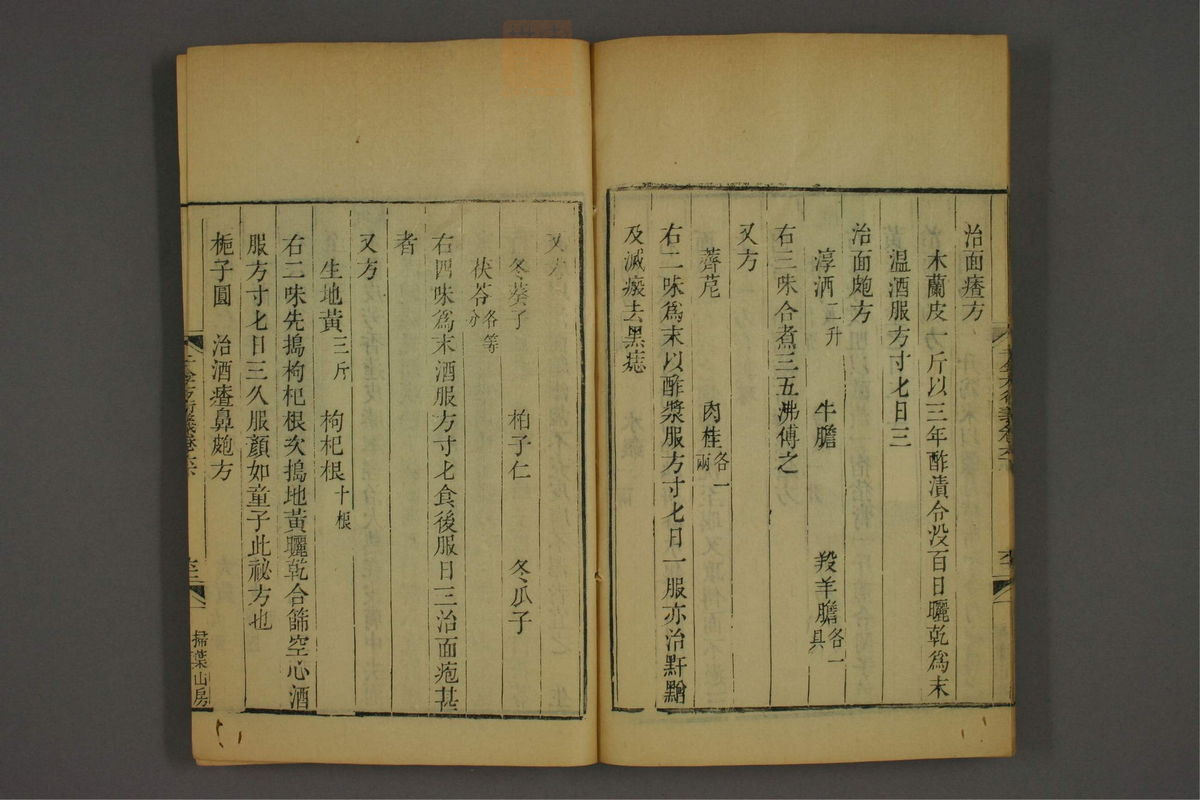 治面㾴方
木蘭皮一斤以三年酢漬令没百日曬乾爲末
温酒服方寸匕日三
治面皰方
淳酒二升 牛膽 羖羊膽各一具
右三味合煮三五沸傅之
又方
薺苨 肉桂各一兩
右二味爲末以酢漿服方寸匕日一服亦治䵟䵳
及滅瘢去黑痣
又方
冬葵子 柏子仁 冬瓜子
茯苓各等分
右四味爲末酒服方寸匕食後服日三治面疱甚
者
又方
生地黃三斤 枸杞根十根
右二味先搗枸杞根次搗地黃曬乾合篩空心酒
服方寸匕日三久服顔如童子此祕方也
梔子圓 治酒㾴鼻皰方
千金方衍義卷六
掃葉山房